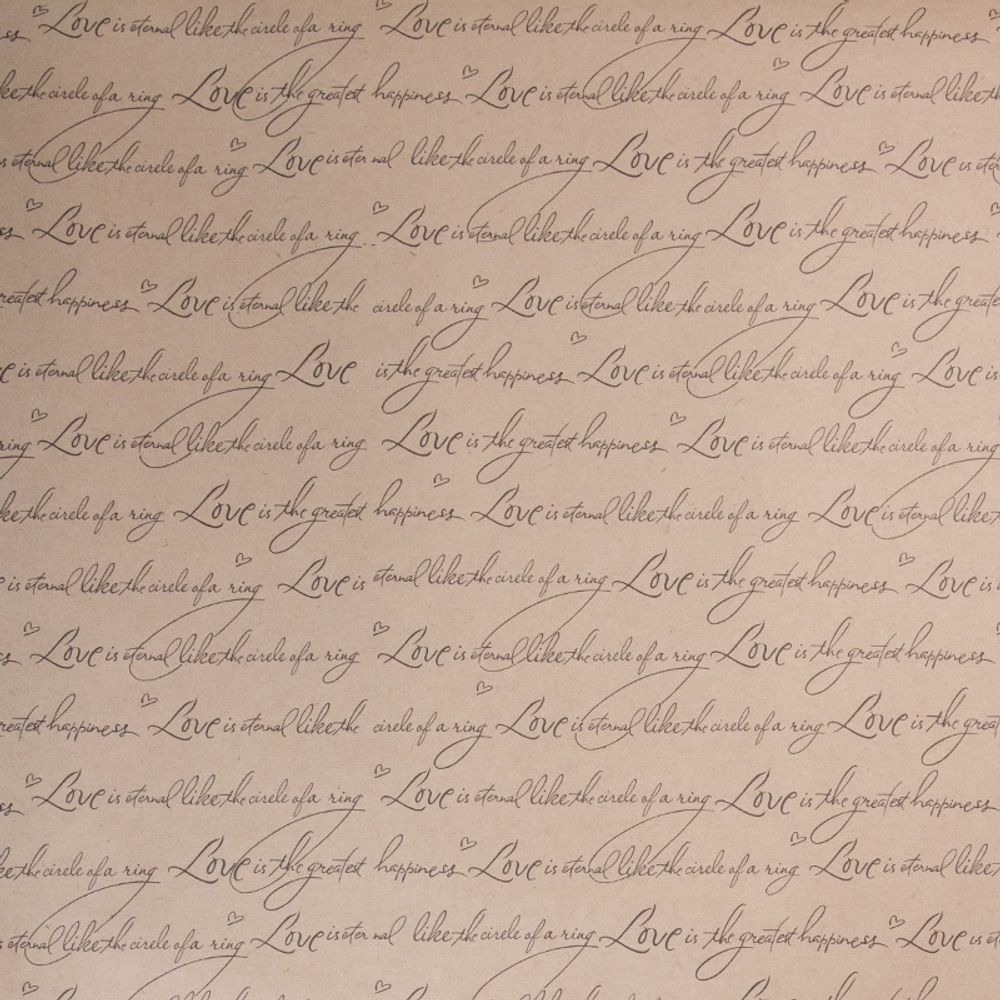 ss Love is eternal like the circle of a ring Love is eternal like the circle of a ring Love is the greatest happiness
ke the circle of a ring Love is the greatest happiness Love is eternal like the circle of a ring Love is eternal like th
s eternal like the circle of a ring Love is eter nal like the circle of a ring Love is the greatest happiness Love is ete
ss Love is eternal like the circle of a ring Love is eternal like the circle of a ring Love is the greatest happiness
reatest happiness Love is eternal like the circle of a ring Love is eternal like the circle of a ring Love is the greate
e is eternal like the circle of a ring Love is the greatest happiness Love is eternal like the circle of a ring Love is
ring Love is eternal like the circle of a ring Love is the greatest happiness Love is eternal like the circle of a ring
ke the circle of a ring Love is the greatest happiness Love is eternal like the circle of a ring Love is eternal like
e is eternal like the circle of a ring Love is eternal like the circle of a ring Love is the greatest happiness Love is
s Love is eternal like the circle of a ring Love is eternal like the circle of a ring Love is the greatest happiness
reatest happiness Love is eternal like the circle of a ring Love is eternal like the circle of a ring Love is the great
ss Love is eternal like the circle of a ring Love is eternal like the circle of a ring Love is the greatest happiness
ke the circle of a ring Love is the greatest happiness Love is eternal like the circle of a ring Love is eternal like
s eternal like the circle of a ring Love is eter nal like the circle of a ring Love is the greatest happiness Love is et